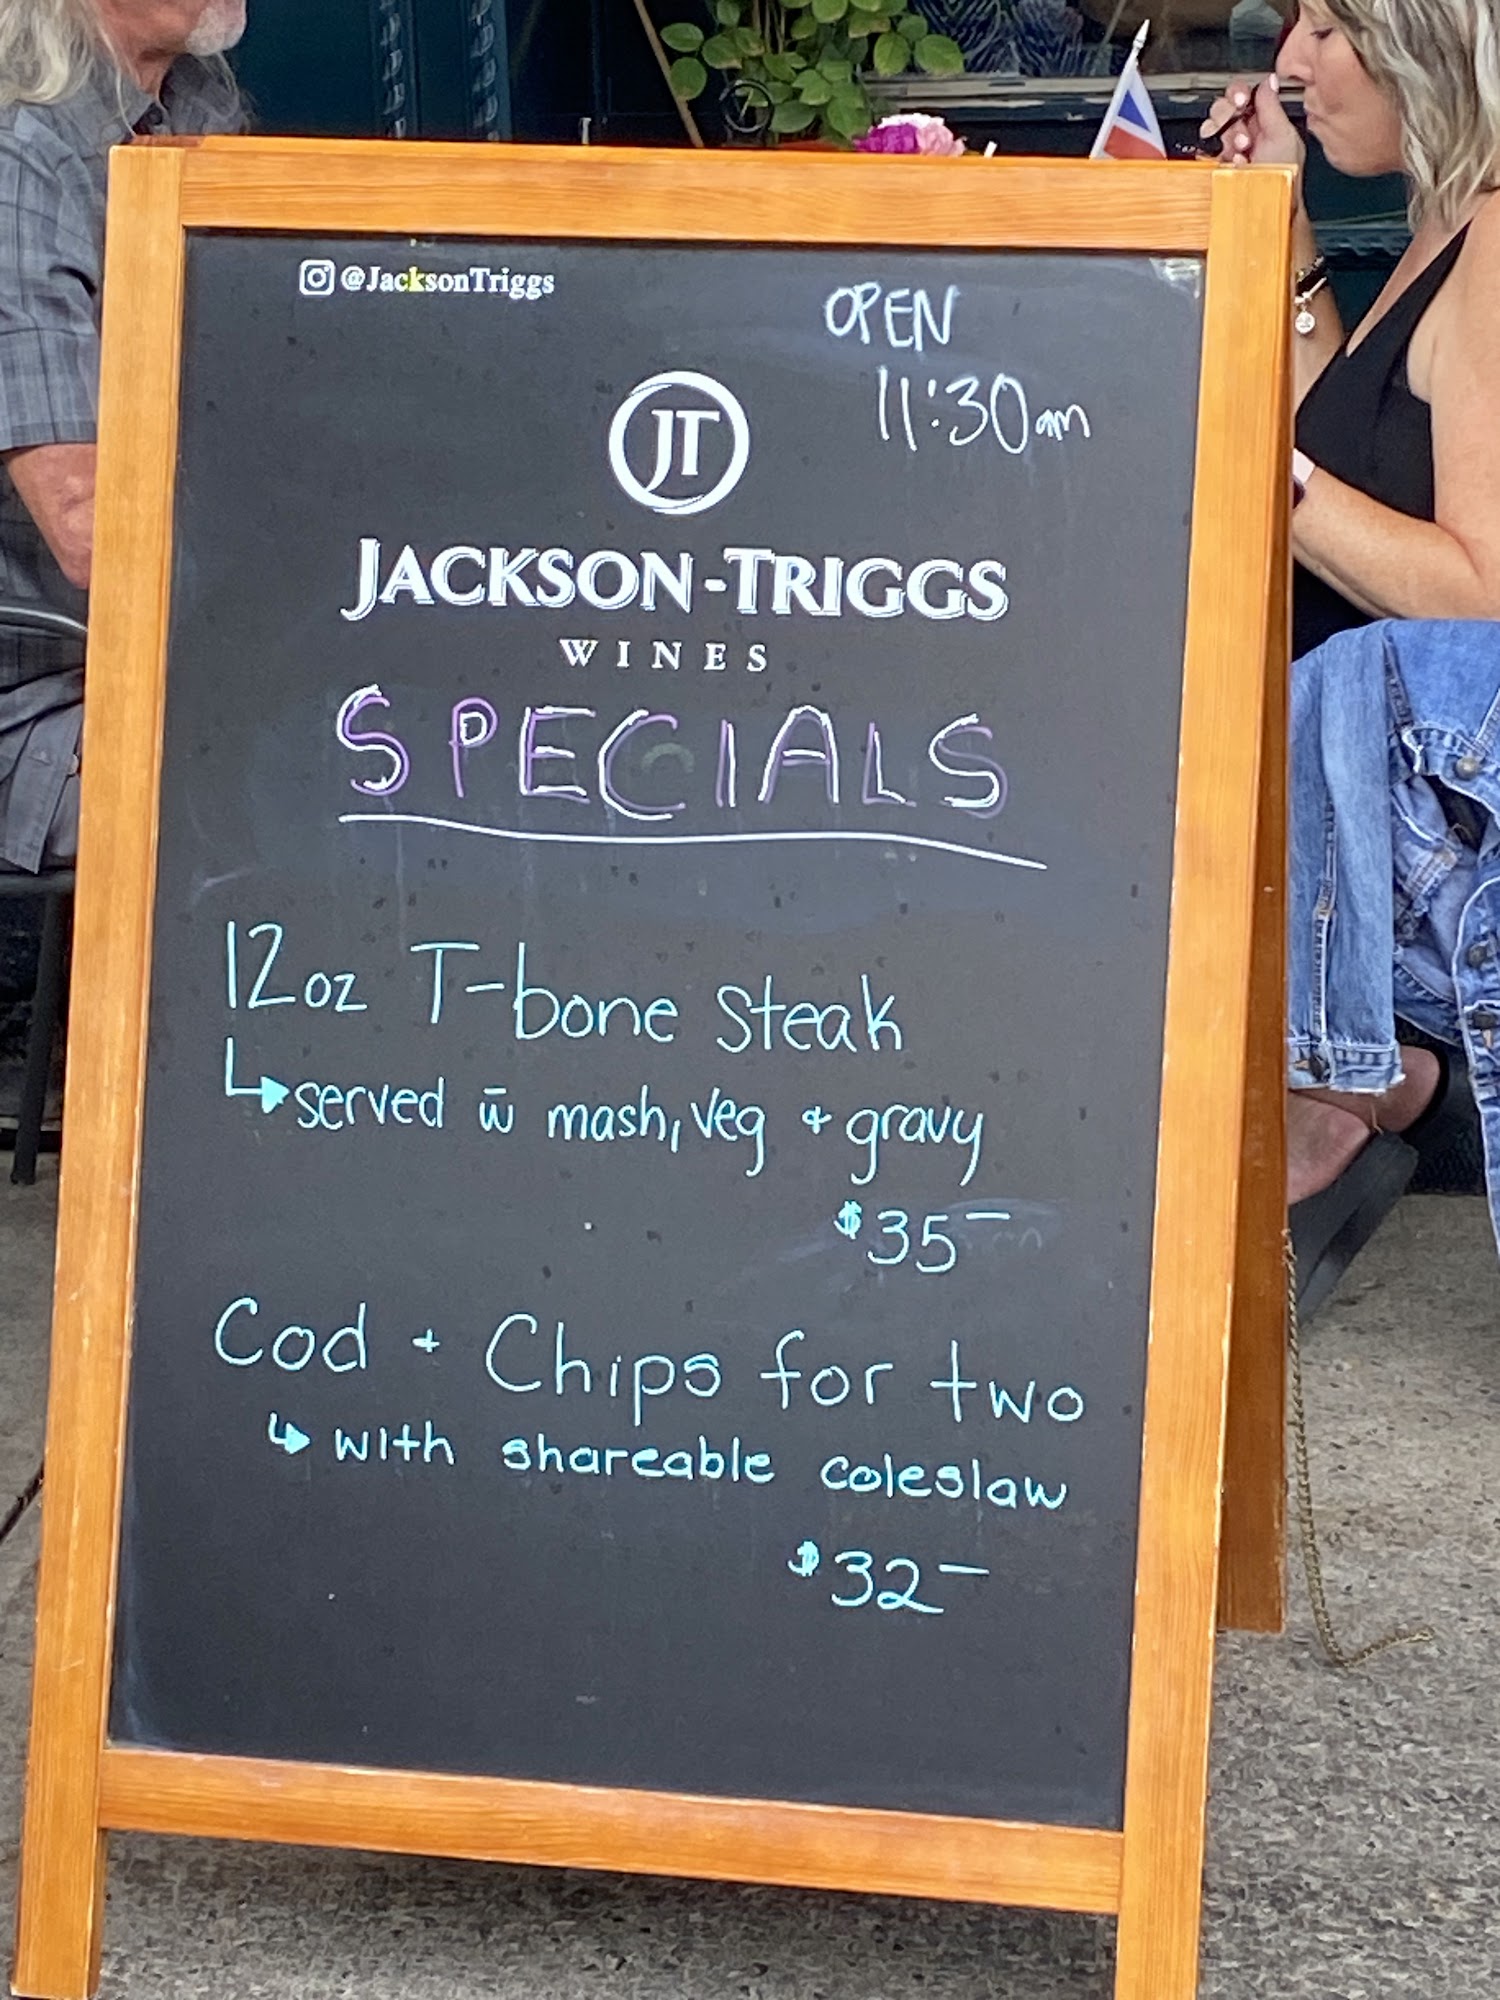 @JacksonTriggs
OPEN
11:30am
JT
JACKSON-TRIGGS
WINES
SPECIALS
12oz T-bone steak
↳served w̄ mash, veg + gravy
$35—
Cod + Chips for two
↳ with shareable coleslaw
$32—